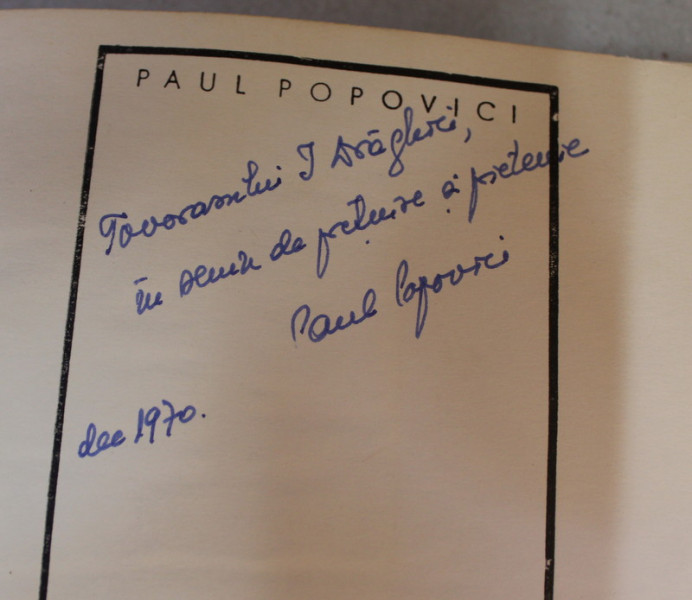 PAUL POPOVICI
Tovarasului I Drăghici,
în semn de prețuire și prietenie
Paul Popovici
dec 1970.